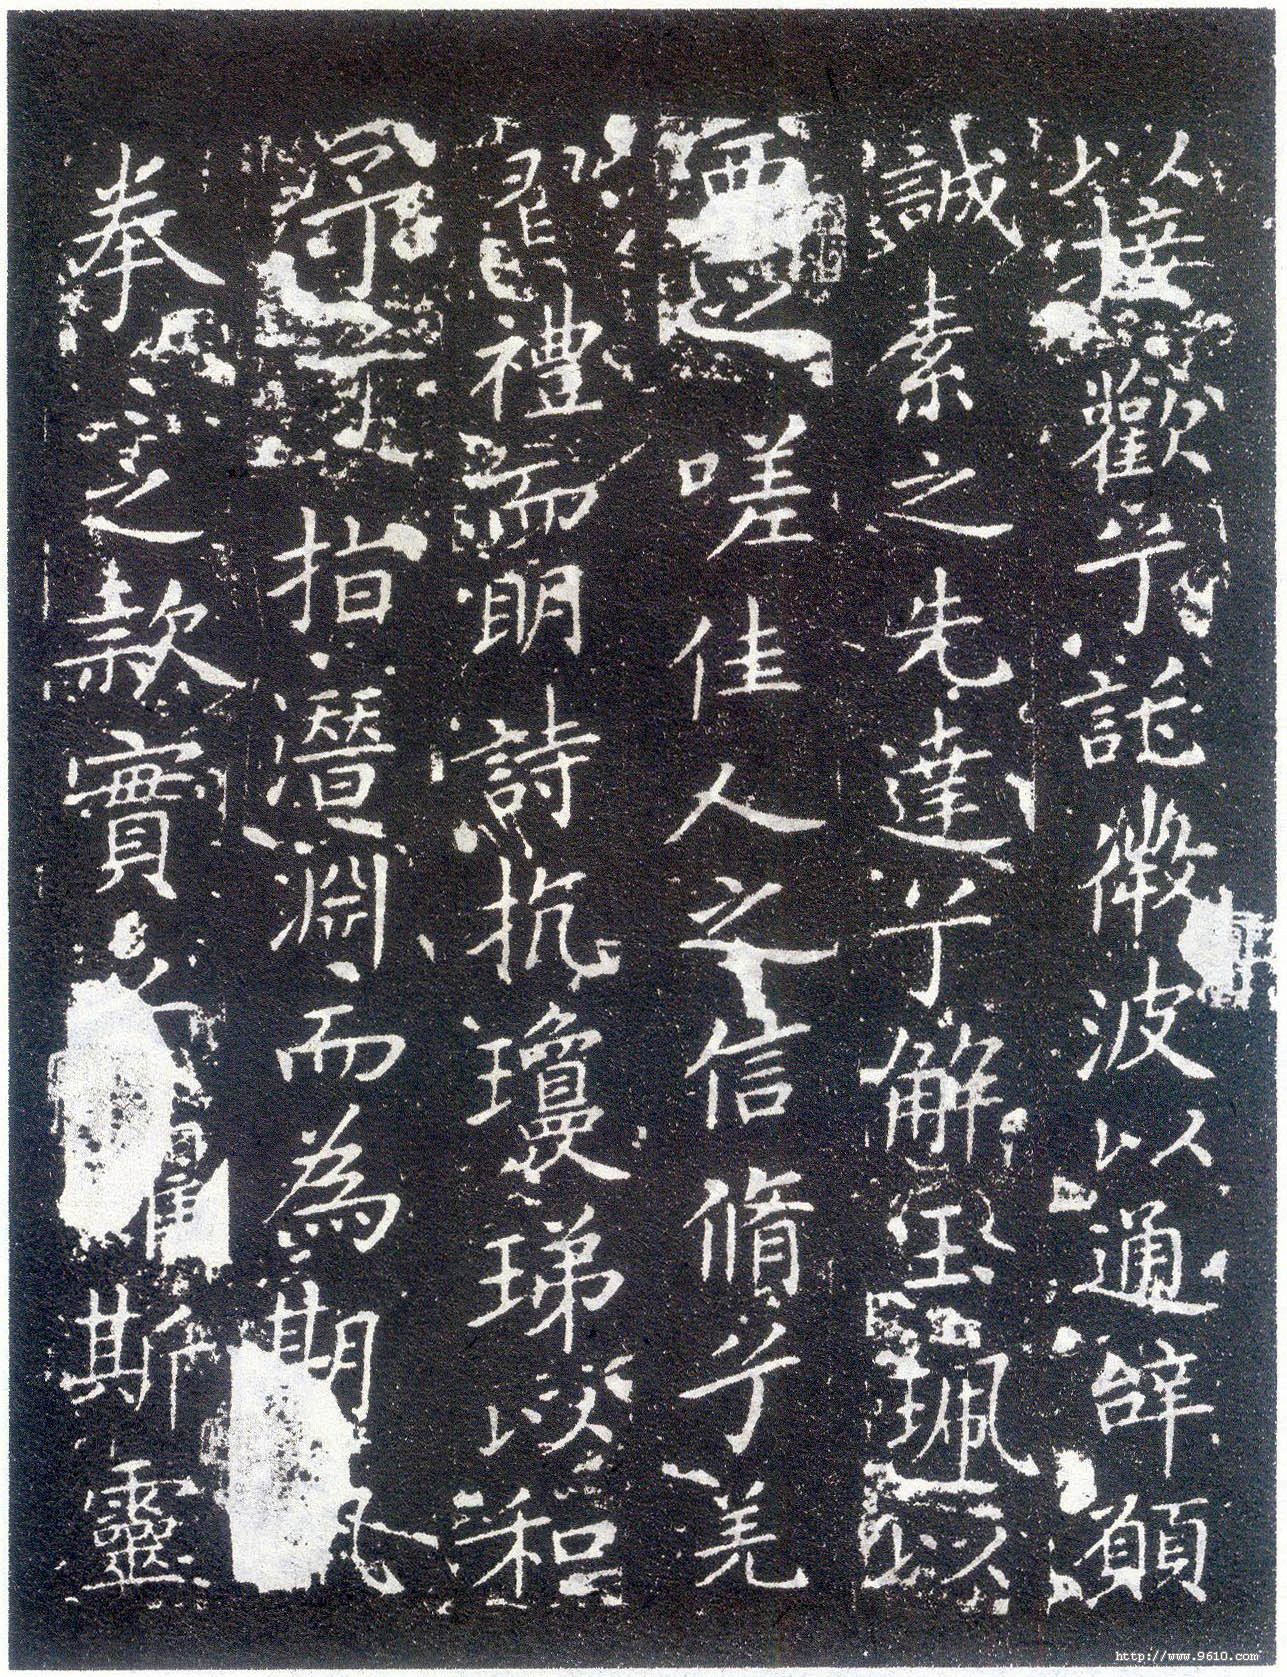 以接歡兮託微波以通辝願
誠素之先達兮解玉珮以
要之嗟佳人之信脩兮羌
習禮而明詩抗瓊珶以和
予兮指潛淵而為期
拳之款實懼斯靈
http://www.9610.com